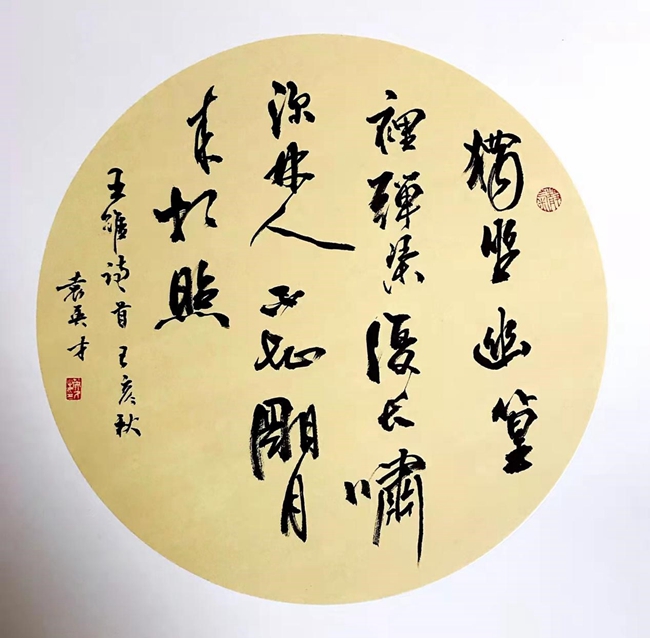 獨坐幽篁
裡彈琴復長嘯
深林人不知朙月
来相照
王維詩首壬寅秋
袁英才